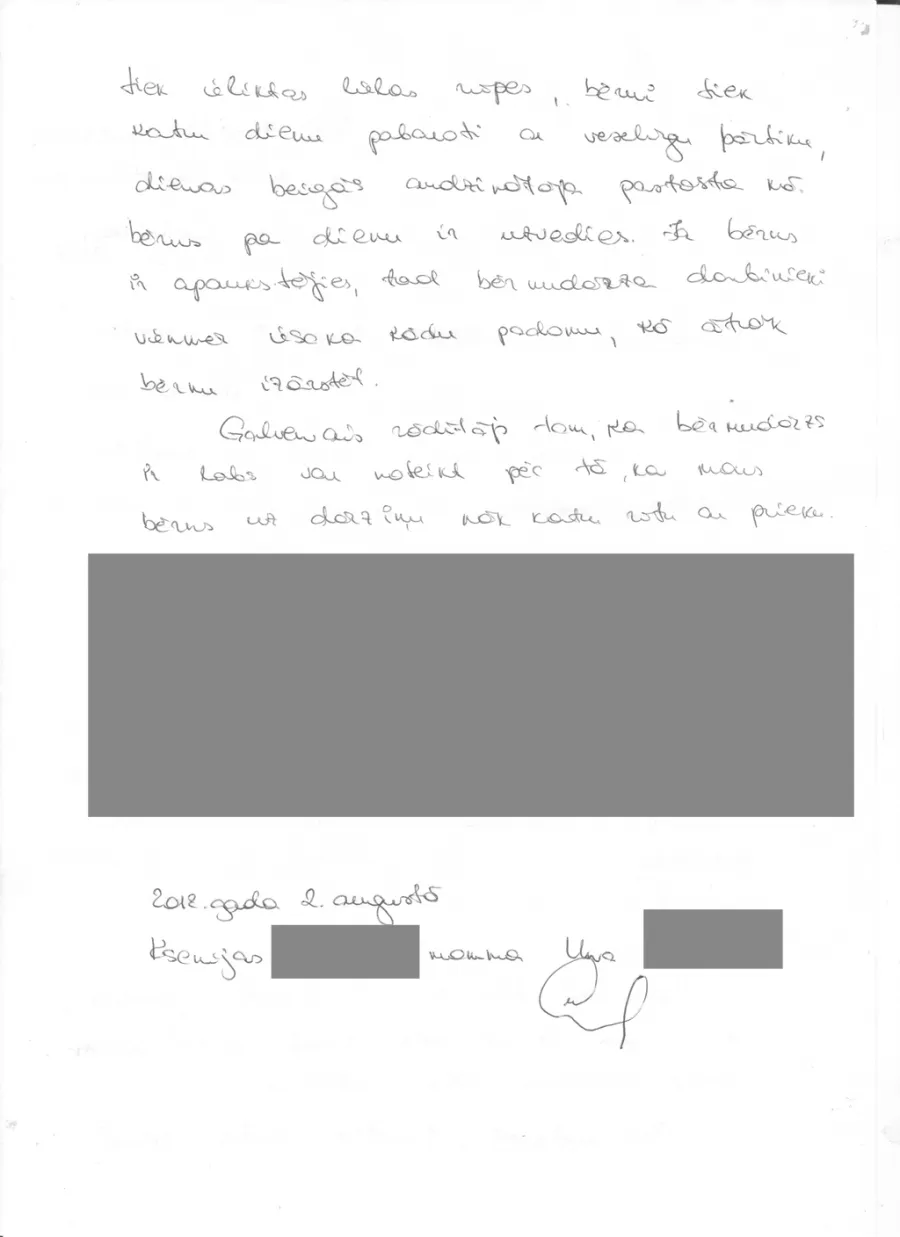 tiek ieliktas lielas rūpes, bērni tiek
katru dienu pabaroti ar veselīgu pārtiku,
dienas beigās audzinātāja pastāsta kā
bērns pa dienu ir uzvedies. Ja bērns
ir apaukstējies, tad bērnudārza darbinieki
vienmēr iesaka kādu padomu, kā ātrāk
bērnu izārstēt.
Galvenais rādītājs tam, ka bērnudārzs
ir labs var noteikt pēc tā, ka mans
bērns uz dārziņu nāk katru rītu ar prieku.
2012. gada 2. augustā
Ksenijas mamma